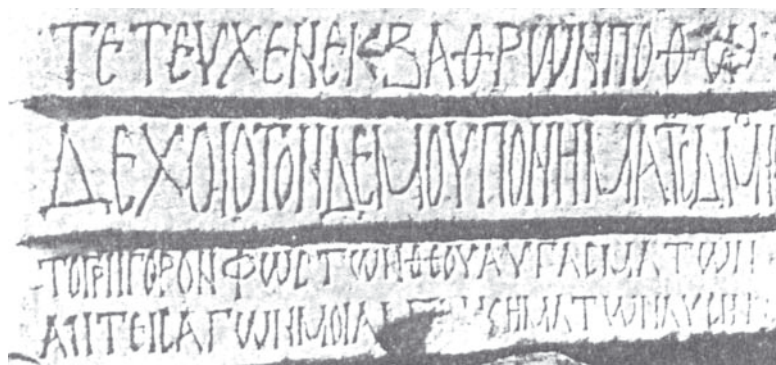 ΤΕΤΕΥΧΕΝΕΚΒΑΘΡΩΝΠΟΘΩ
ΔΕΧΟΙΟΤΟΝΔΕΜΟΥΠΟΝΗΜΑΤΟΔΜ
ΤΟΓΡΗΓΟΡΟΝΦΩCΤΩΝΘΕΟΥΑΥΓΑCΜΑΤΩΝ
ΑΝΤΕΙCΑΓΩΝΜΟΙ ΗΜΑΤΩΝΛΥCΙΝ